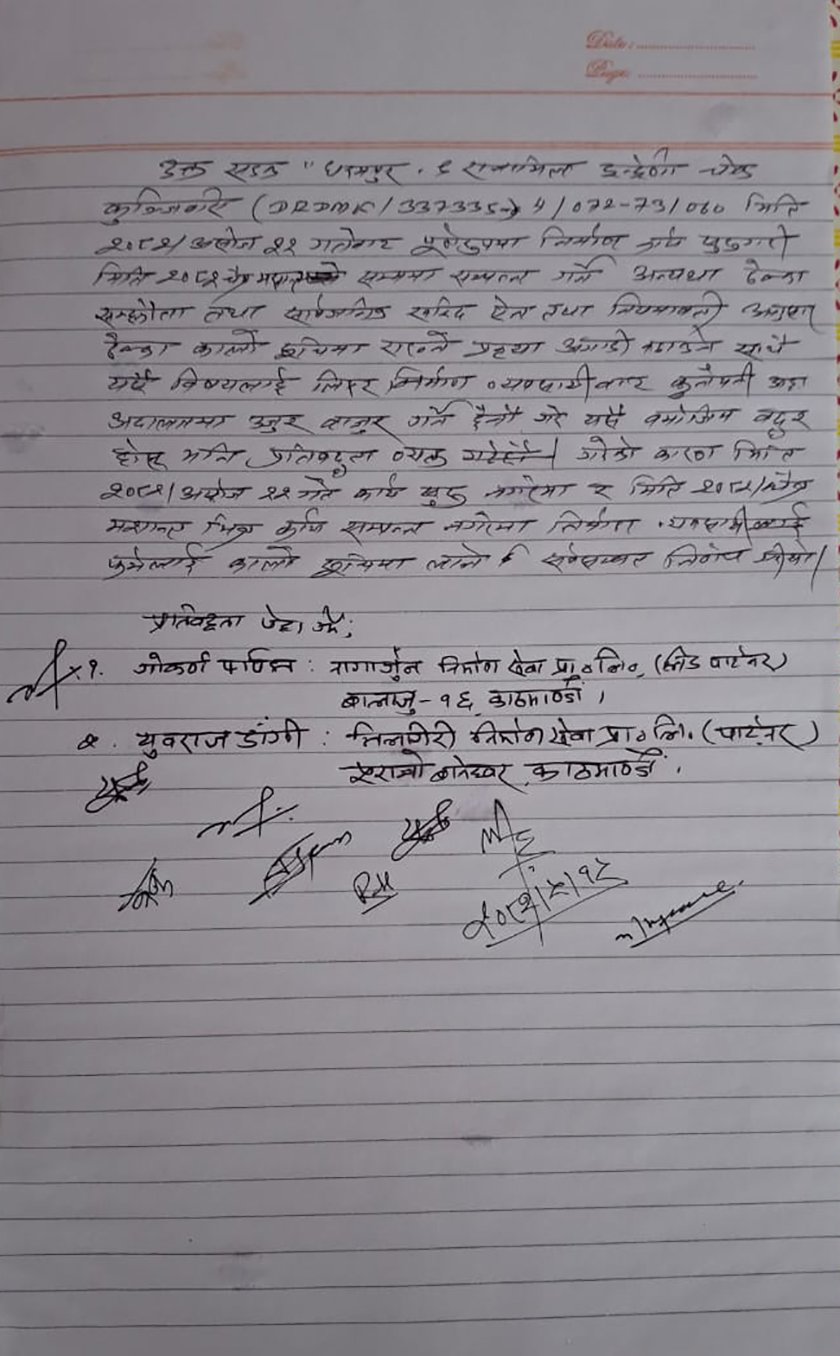 Date:
Page:
उक्त सडक "धरमपुर - ६ राजामिल इन्द्रेणी चोक
कुञ्जिबारी (DRDMK/337335-) 4/072-73/060 मिति
२०८२/असोज २२ गतेबाट पूर्णरुपमा निर्माण कार्य सुरुगरी
मिति २०८२ चैत्र सम्ममा सम्पन्न गर्ने अन्यथा ठेक्का
सम्झौता तथा सार्वजनिक खरिद ऐन तथा नियमावली अनुसार
ठेक्का कालो सूचिमा राख्ने प्रकृया अगाडी बढाउने साथै
यसै विषयलाई लिएर निर्माण व्यवसायीबाट कुनैपनी अड्डा
अदालतमा उजुर बाजुर गर्ने छैनौ गरे यसै बमोजिम बदर
होस् भनि प्रतिबद्धता व्यक्त गर्दछौ। गरेको कारण मिति
२०८२/असोज २२ गते कार्य सुरु नगरेमा र मिति २०८२/चैत्र
मसान्त भित्र कार्य सम्पन्न नगरेमा निर्माण व्यवसायीलाई
फर्मलाई कालो सूचिमा लाने सर्वसम्मत निर्णय गरियो।
प्रतिबद्धता गर्ने;
१. गोकर्ण पण्डित : नागार्जुन निर्माण सेवा प्रा॰लि॰, (लिड पार्टनर)
बालाजु-१६ काठमाण्डौं।
२. युवराज डाँगी : निलगिरी निर्माण सेवा प्रा॰लि. (पार्टनर)
बानेश्वर, काठमाण्डौं।